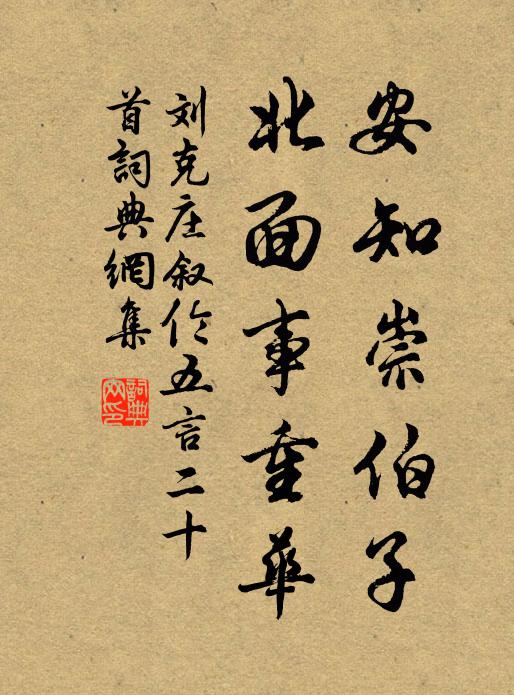 安知崇伯子
北面事重華
刘克庄叙伦五言二十
首詞典網集
詞典
网印